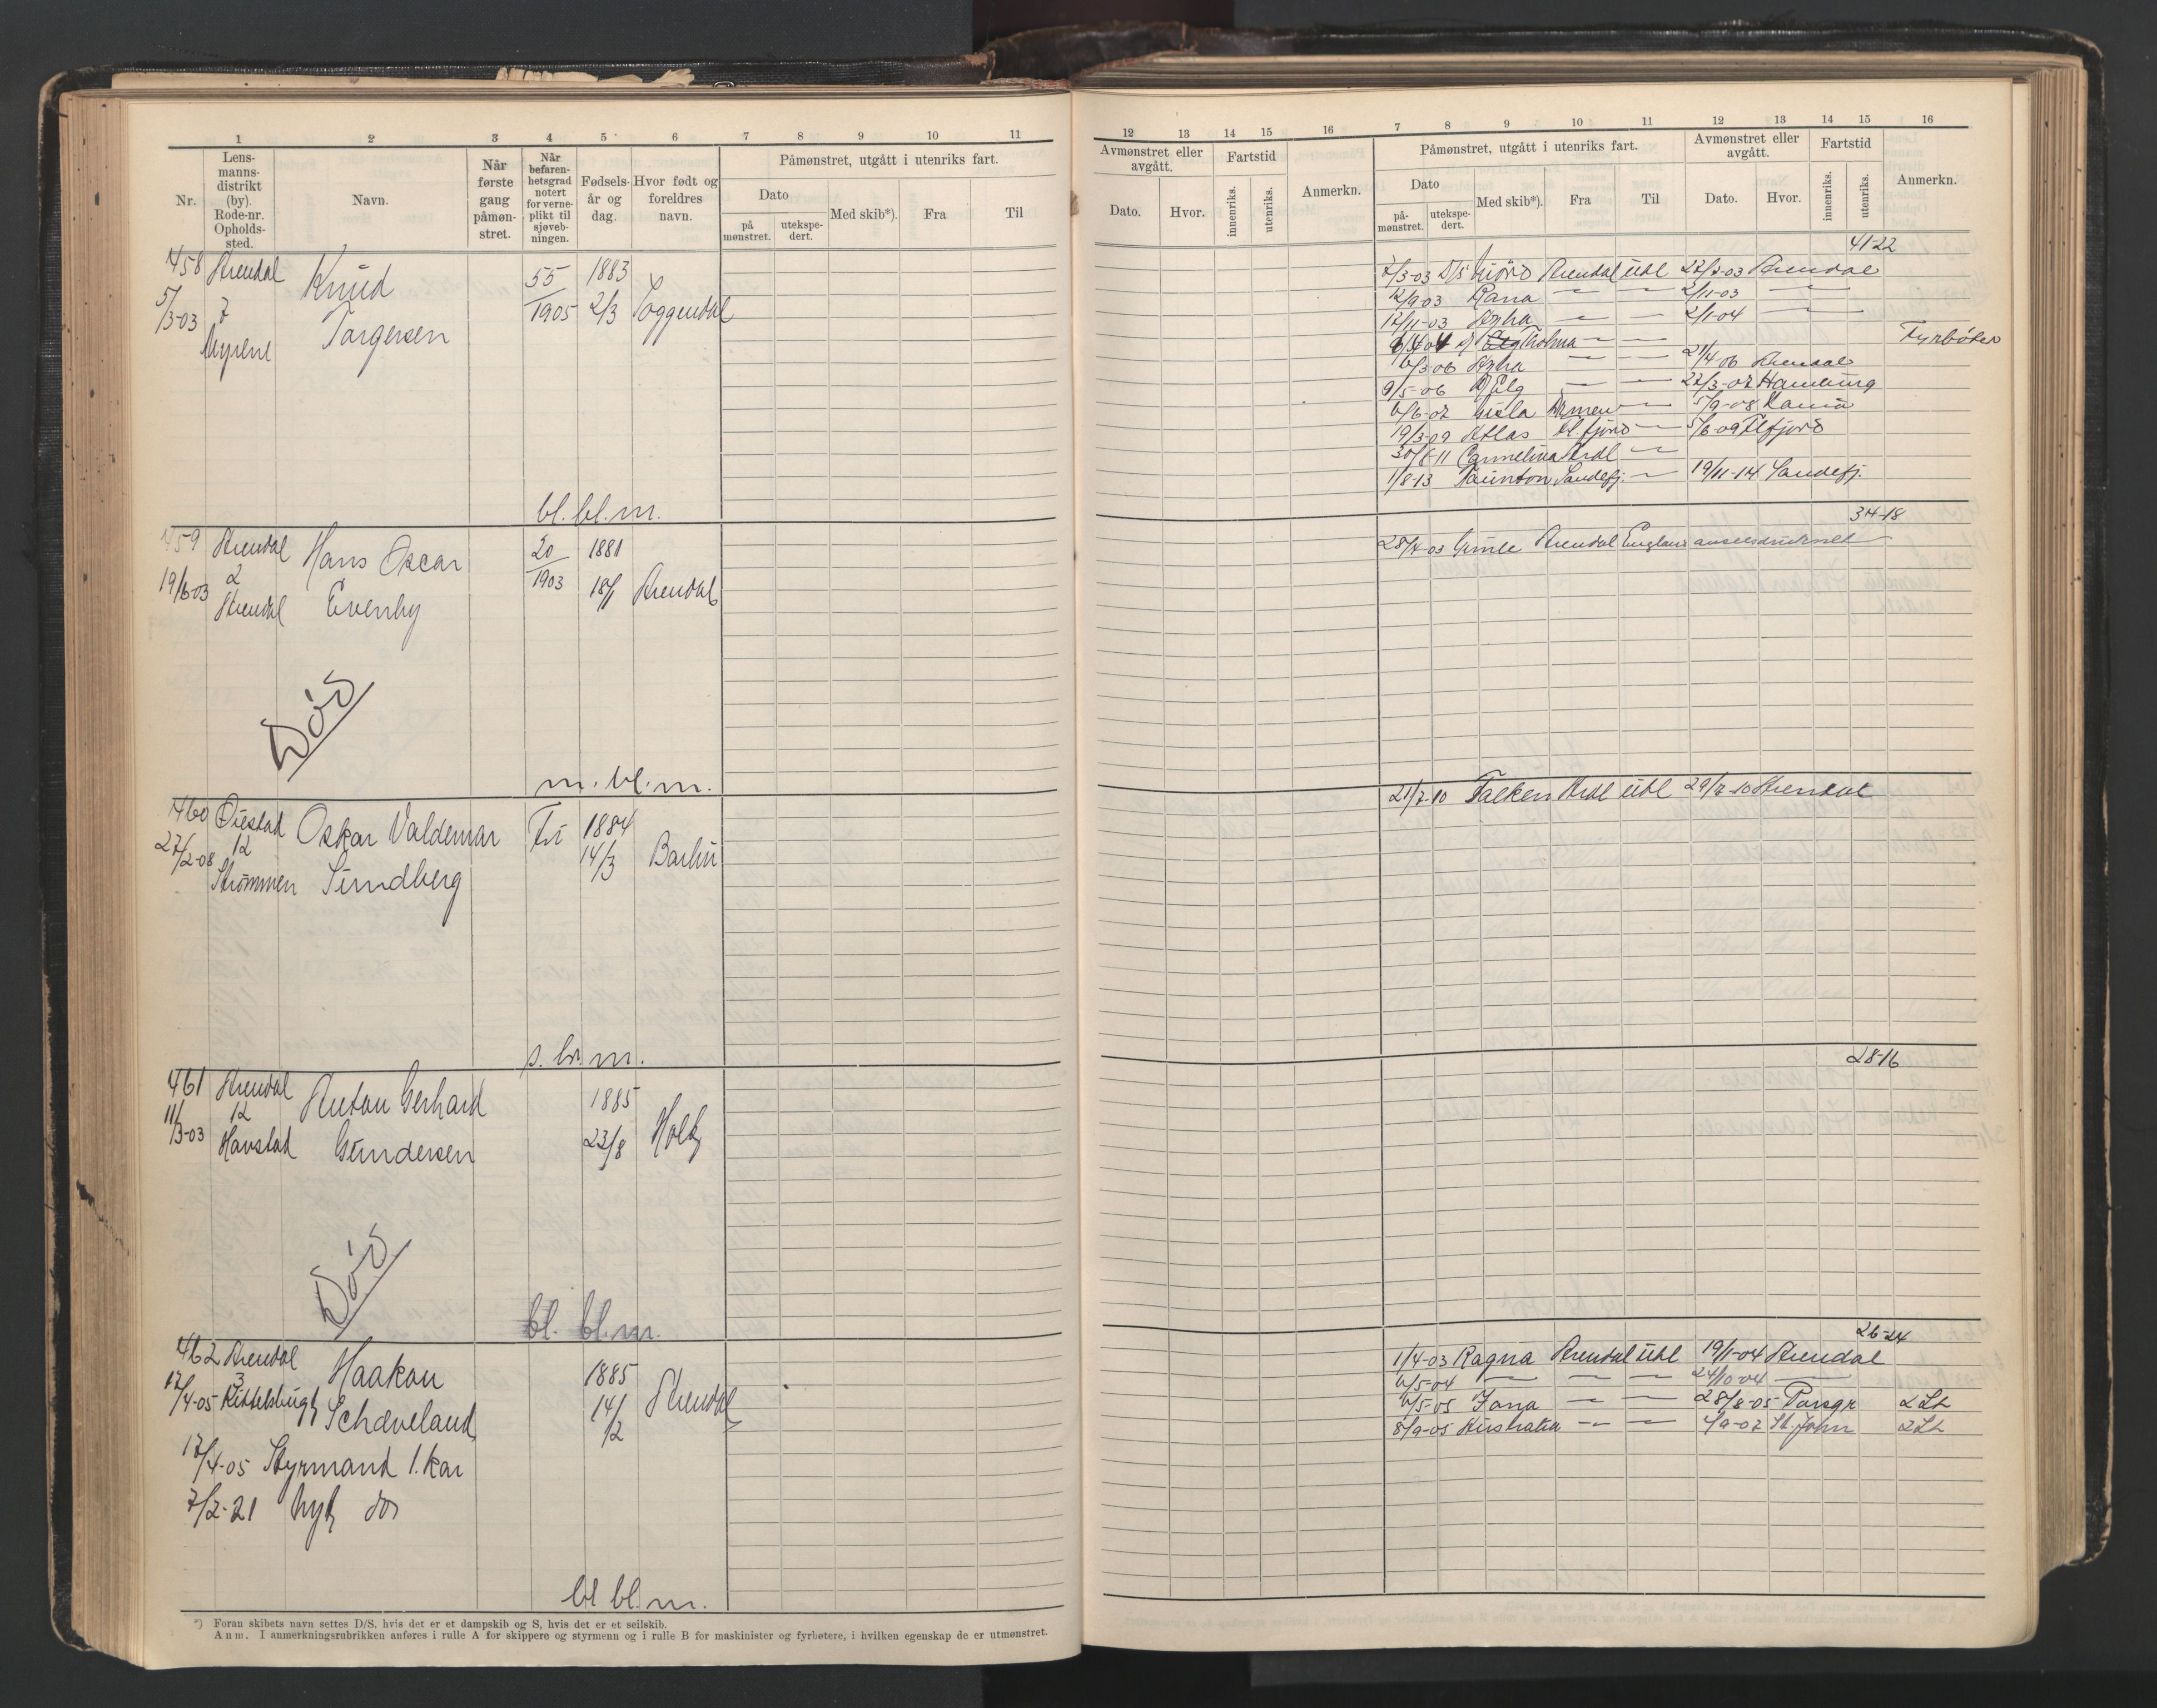 1 2 3 4 5 6 7 8 9 10 11
Nr.
Lens-
manns-
distrikt
(by).
Rode-nr.
Opholds-
sted.
Navn.
Når
første
gang
påmøn-
stret.
Når
befaren-
hetsgrad
notert
for verne-
plikt til
sjøveb-
ningen.
Fødsels-
år og
dag.
Hvor født og
foreldres
navn.
Påmønstret, utgått i utenriks fart.
Dato
på
mønstret.
utekspe-
dert.
Med skib*).
Fra
Til
458 Arendal Knud 55 1883
5/3-03 7 Torgersen 1905 2/3 Soggendal
Myrene
bl. bl. m.
459 Arendal Hans Oscar 20 1881
19/6-03 2 Evenby 1903 18/1 Arendal
Arendal
Død
m. bl. m.
460 Øiestad Oskar Valdemar Fri 1884
27/2-08 12 14/3 Barbu
Strømmen Sundberg
s. br. m.
461 Arendal Anton Gerhard 1885
11/3-03 12 23/8 Holt
Havstad Gundersen
Død
bl. bl. m.
462 Arendal Haakon 1885
17/4-05 3 Kittelsbugt Schaveland 14/2 Arendal
17/4-05 Styrmand 1. kar
7/2-21 Nyt do
bl bl. m.
*) Foran skibets navn settes D/S. hvis det er et dampskib og S, hvis det er et seilskib.
Anm. I anmerkningsrubrikken anføres i rulle A for skippere og styrmenn og i rulle B for maskinister og fyrbøtere, i hvilken egenskap de er utmønstret.
12 13 14 15 16 7 8 9 10 11 12 13 14 15 16
Avmønstret eller
avgått.
Dato.
Hvor.
Fartstid
innenriks.
utenriks.
Anmerkn.
Påmønstret, utgått i utenriks fart.
Dato
på-
mønstret.
utekspe-
dert.
Med skib*).
Fra
Til
Avmønstret eller
avgått.
Dato.
Hvor.
Fartstid
innenriks.
utenriks.
Anmerkn.
41-22
7/3-03 D/S Njörd Arendal udl 27/8-03 Arendal
12/9-03 Rana — — 2/11-03 —
17/11-03 Agha — — 2/1-04 —
Tholma — — Fyrbøter
6/3-06 Agha — — 21/4 06 Arendal
9/5-06 Elg — — 27/3-07 Hamburg
6/6-07 Gisla — 5/9-08
19/3-09 Atlas — 5/6-09
30/8-11 Carmelina Ardl —
1/8-13 Taunton Sandefj. — 19/11-14 Sandefj.
34-18
28/4-03 Gimle Arendal England
21/7-10 Falken Ardl udl 29/7-10 Arendal
28-16
26-24
1/4-03 Ragna Arendal udl 19/1-04 Arendal
6/5-04 — — — 24/10-04 —
6/5-05 Fana — — 28/8-05 Porsgr 2 St
8/9-05 Australia — — 4/9-07 St John 2 St